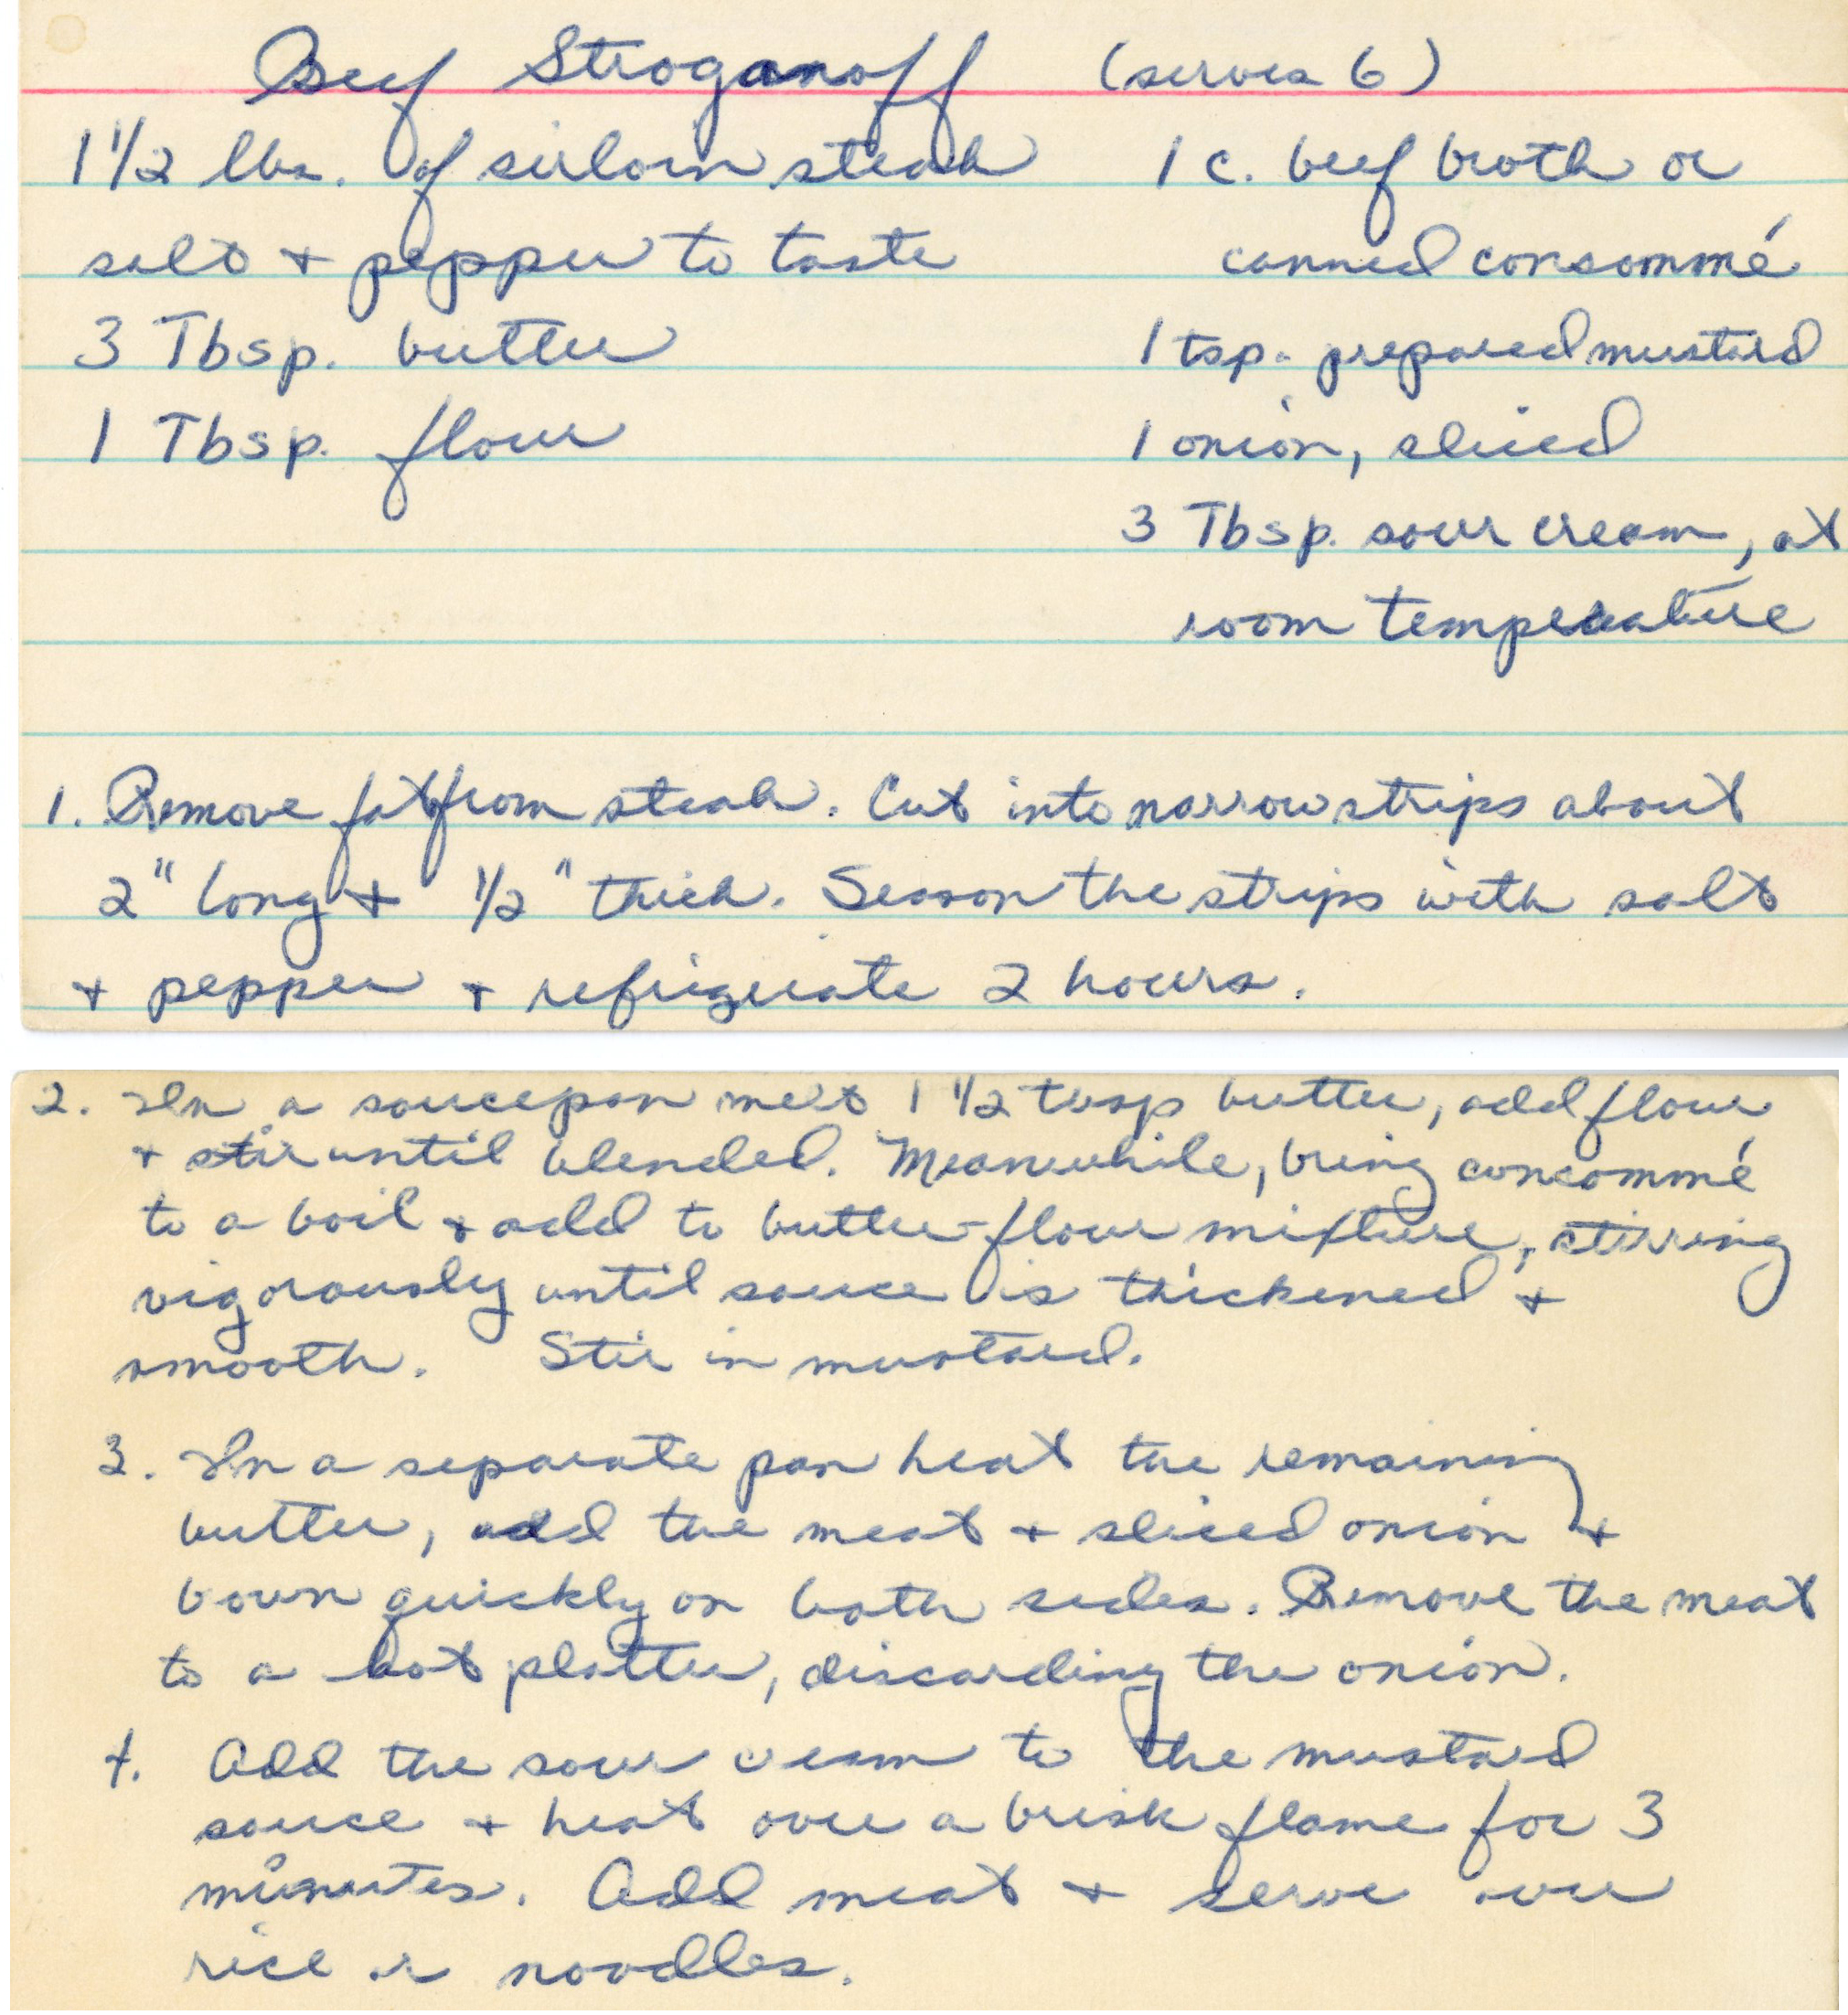 Beef Stroganoff (serves 6)
1 1/2 lbs. of sirloin steak
salt + pepper to taste
3 Tbsp. butter
1 Tbsp. flour
1 c. beef broth or
canned consommé
1 tsp. prepared mustard
1 onion, sliced
3 Tbsp. sour cream, at
room temperature
1. Remove fat from steak. Cut into narrow strips about
2" long + 1/2" thick. Season the strips with salt
+ pepper + refrigerate 2 hours.
2. In a saucepan melt 1 1/2 tbsp butter, add flour
+ stir until blended. Meanwhile, bring consommé
to a boil + add to butter-flour mixture, stirring
vigorously until sauce is thickened +
smooth. Stir in mustard.
3. In a separate pan heat the remaining
butter, add the meat + sliced onion +
bown quickly on both sides. Remove the meat
to a hot platter, discarding the onion.
4. Add the sour cream to the mustard
sauce + heat over a brisk flame for 3
minutes. Add meat + serve over
rice or noodles.